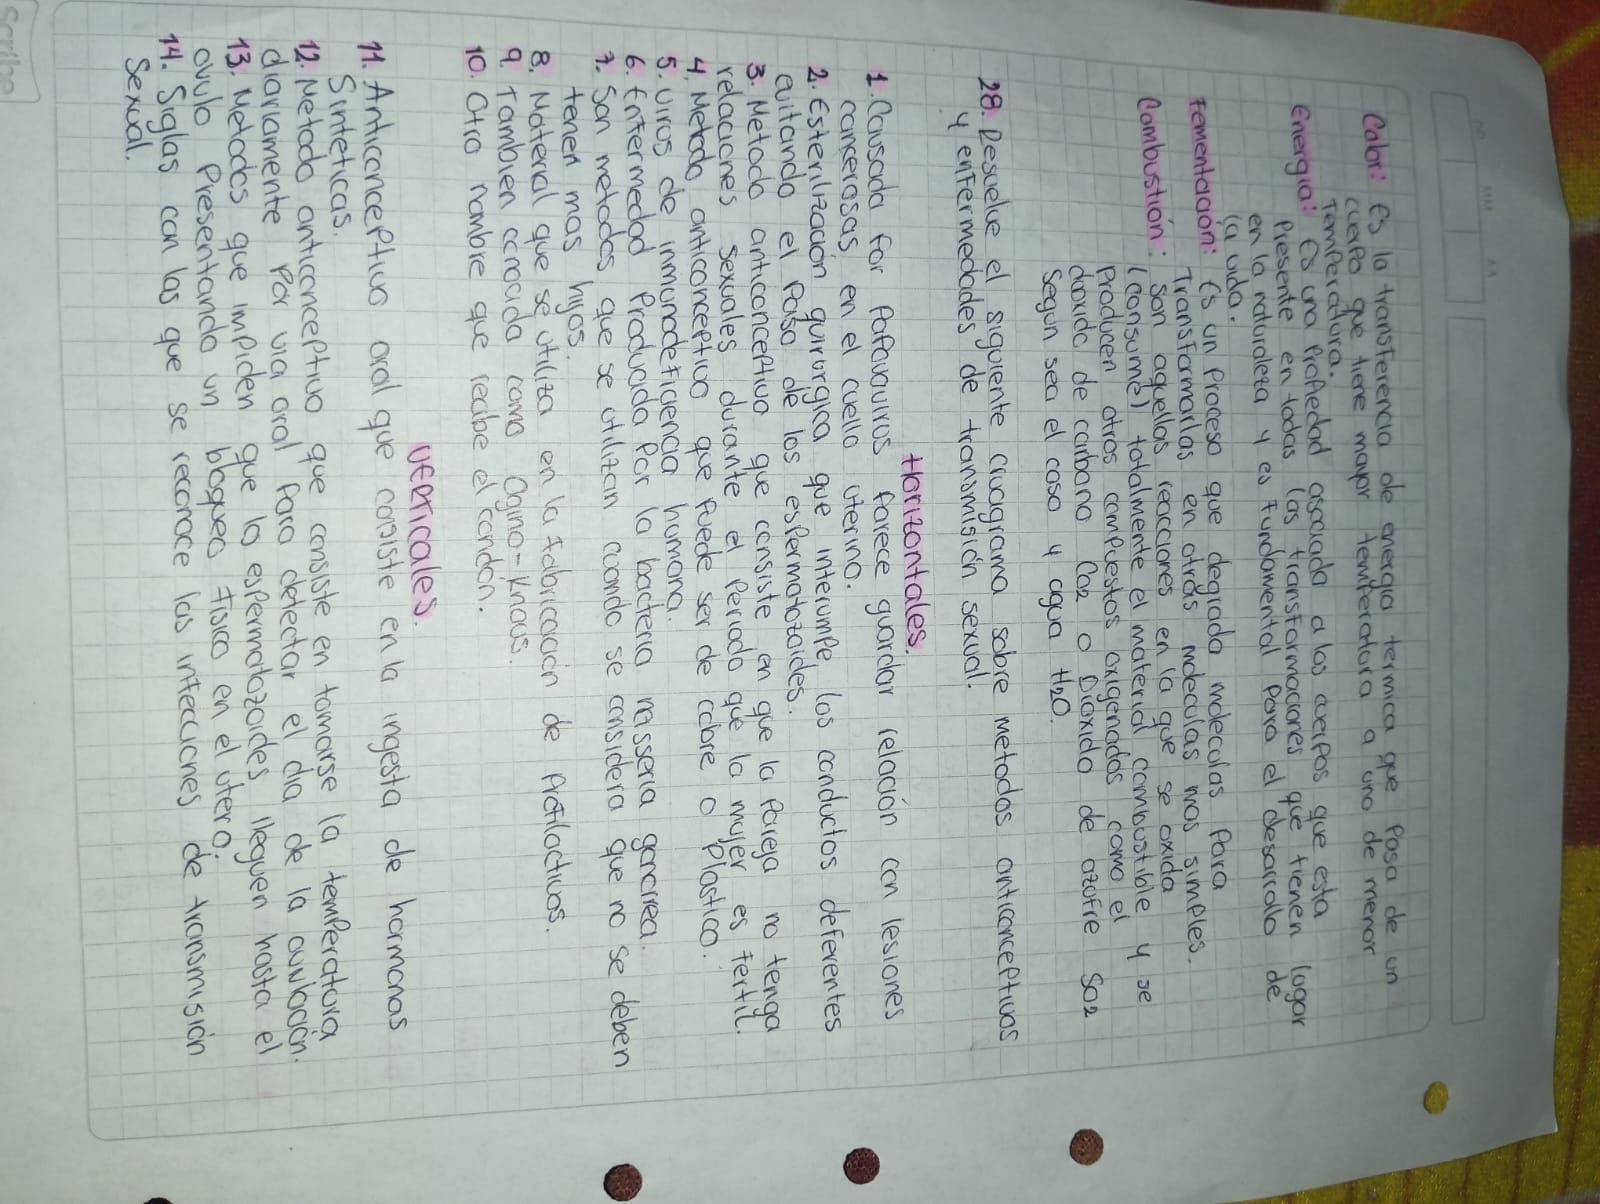 Calor: Es la transferencia de energia termica que Pasa de un
cuerpo que tiene mayor temperatura a uno de menor
Temperatura.
Energia: Es una Propiedad asociada a los cuerpos que esta
Presente en todas las transformaciones que tienen logar
en la naturaleza y es fundamental Para el desarrollo de
la vida.
Fementacion: Es un Proceso que degrada moleculas Para
Transformarlas en otras moleculas mas simples.
Combustión: Son aquellas reacciones en la que se oxida
(consume) totalmente el material combustible y se
Producen otros compuestos oxigenados como el
dioxido de carbono Co2 o Dioxido de azufre So2
Segun sea el caso y agua H2O.
28. Resuelve el siguiente crucigrama sobre metodos anticonceptivos
y enfermedades de transmisión sexual.
Horizontales.
1. Causada Por Papovavirus Parece guardar relación con lesiones
cancerosas en el cuello uterino.
2. Esterilización quirurgica que interumpe los conductos deferentes
evitando el Paso de los espermatozoides.
3. Metodo anticonceptivo que consiste en que la Pareja no tenga
relaciones sexuales durante el Periodo que la mujer es fertil.
4. Metodo anticonceptivo que Puede ser de cobre o Plastico.
5. Virus de inmunodeficiencia humana.
6. Enfermedad Producida Por la bacteria nasseria gonorrea.
7. Son metodos que se utilizan cuando se considera que no se deben
tener mas hijos.
8. Material que se utiliza en la fabricación de Profilacticos.
9. Tambien conocido como Ogino-Knaus.
10. Otro nombre que recibe el condón.
Verticales.
11. Anticonceptivo oral que consiste en la ingesta de hormonas
Sinteticas.
12. Metodo anticonceptivo que consiste en tomarse la temperatura
diariamente Por via oral Para detectar el dia de la ovulación.
13. Metodos que impiden que lo espermatozoides lleguen hasta el
ovulo Presentando un bloqueo fisico en el utero.
14. Siglas con las que se reconoce las infecciones de transmisión
Sexual.
Scribe